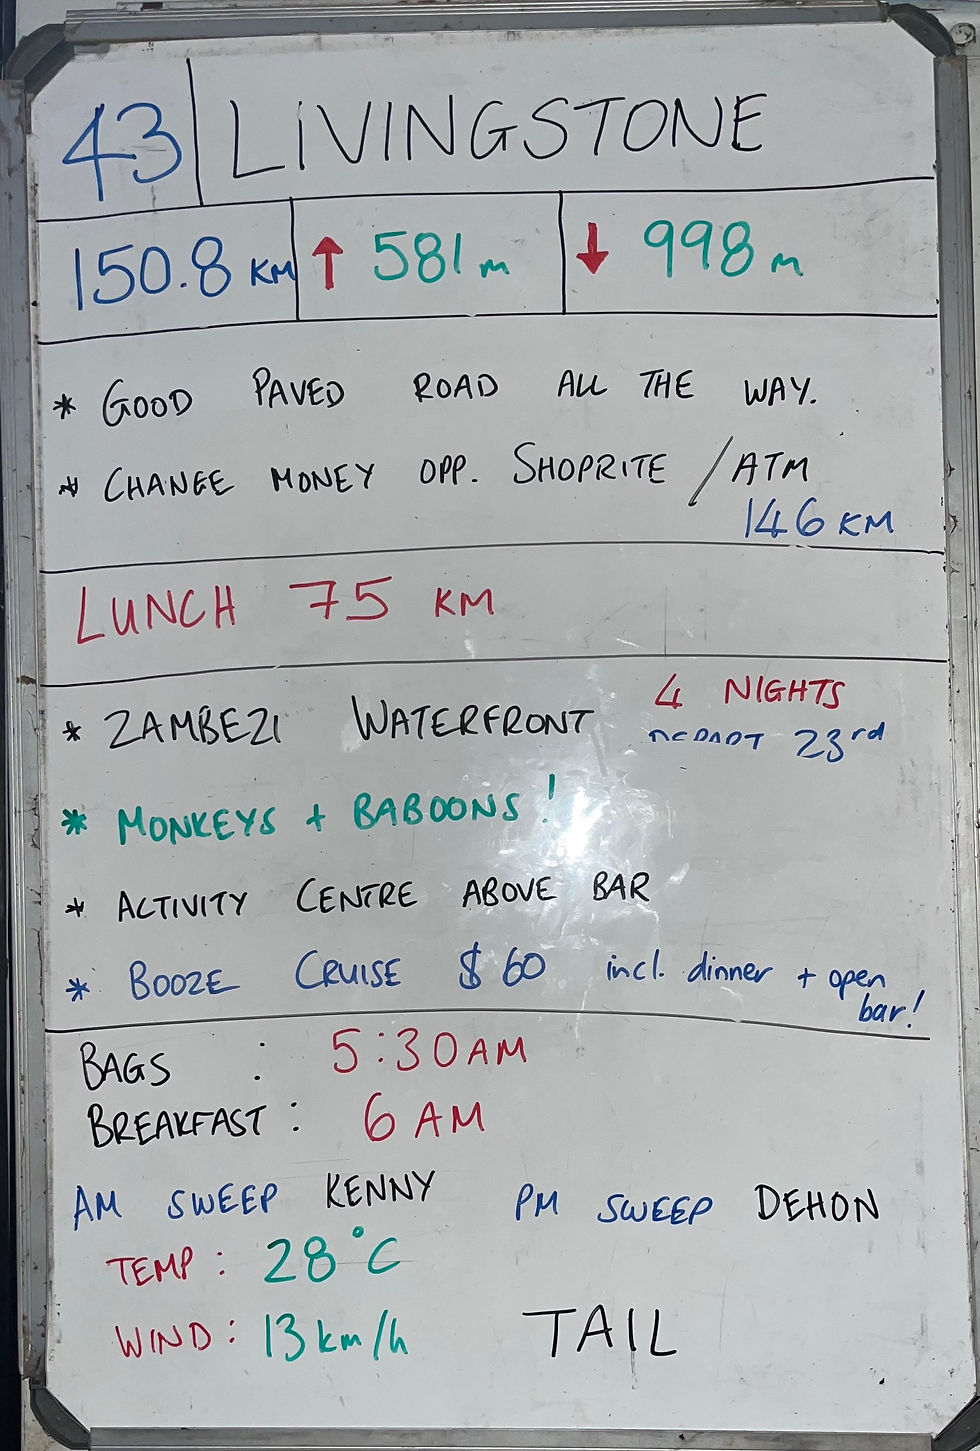 43 LIVINGSTONE
150.8 KM ↑ 581 m ↓ 998 m
* GOOD PAVED ROAD ALL THE WAY.
* CHANGE MONEY OPP. SHOPRITE / ATM
146 KM
LUNCH 75 KM
* ZAMBEZI WATERFRONT 4 NIGHTS
DEPART 23rd
* MONKEYS + BABOONS!
* ACTIVITY CENTRE ABOVE BAR
* BOOZE CRUISE $60 incl. dinner + open
bar!
BAGS : 5:30 AM
BREAKFAST : 6 AM
AM SWEEP KENNY PM SWEEP DEHON
TEMP : 28°C
WIND : 13 km/h TAIL